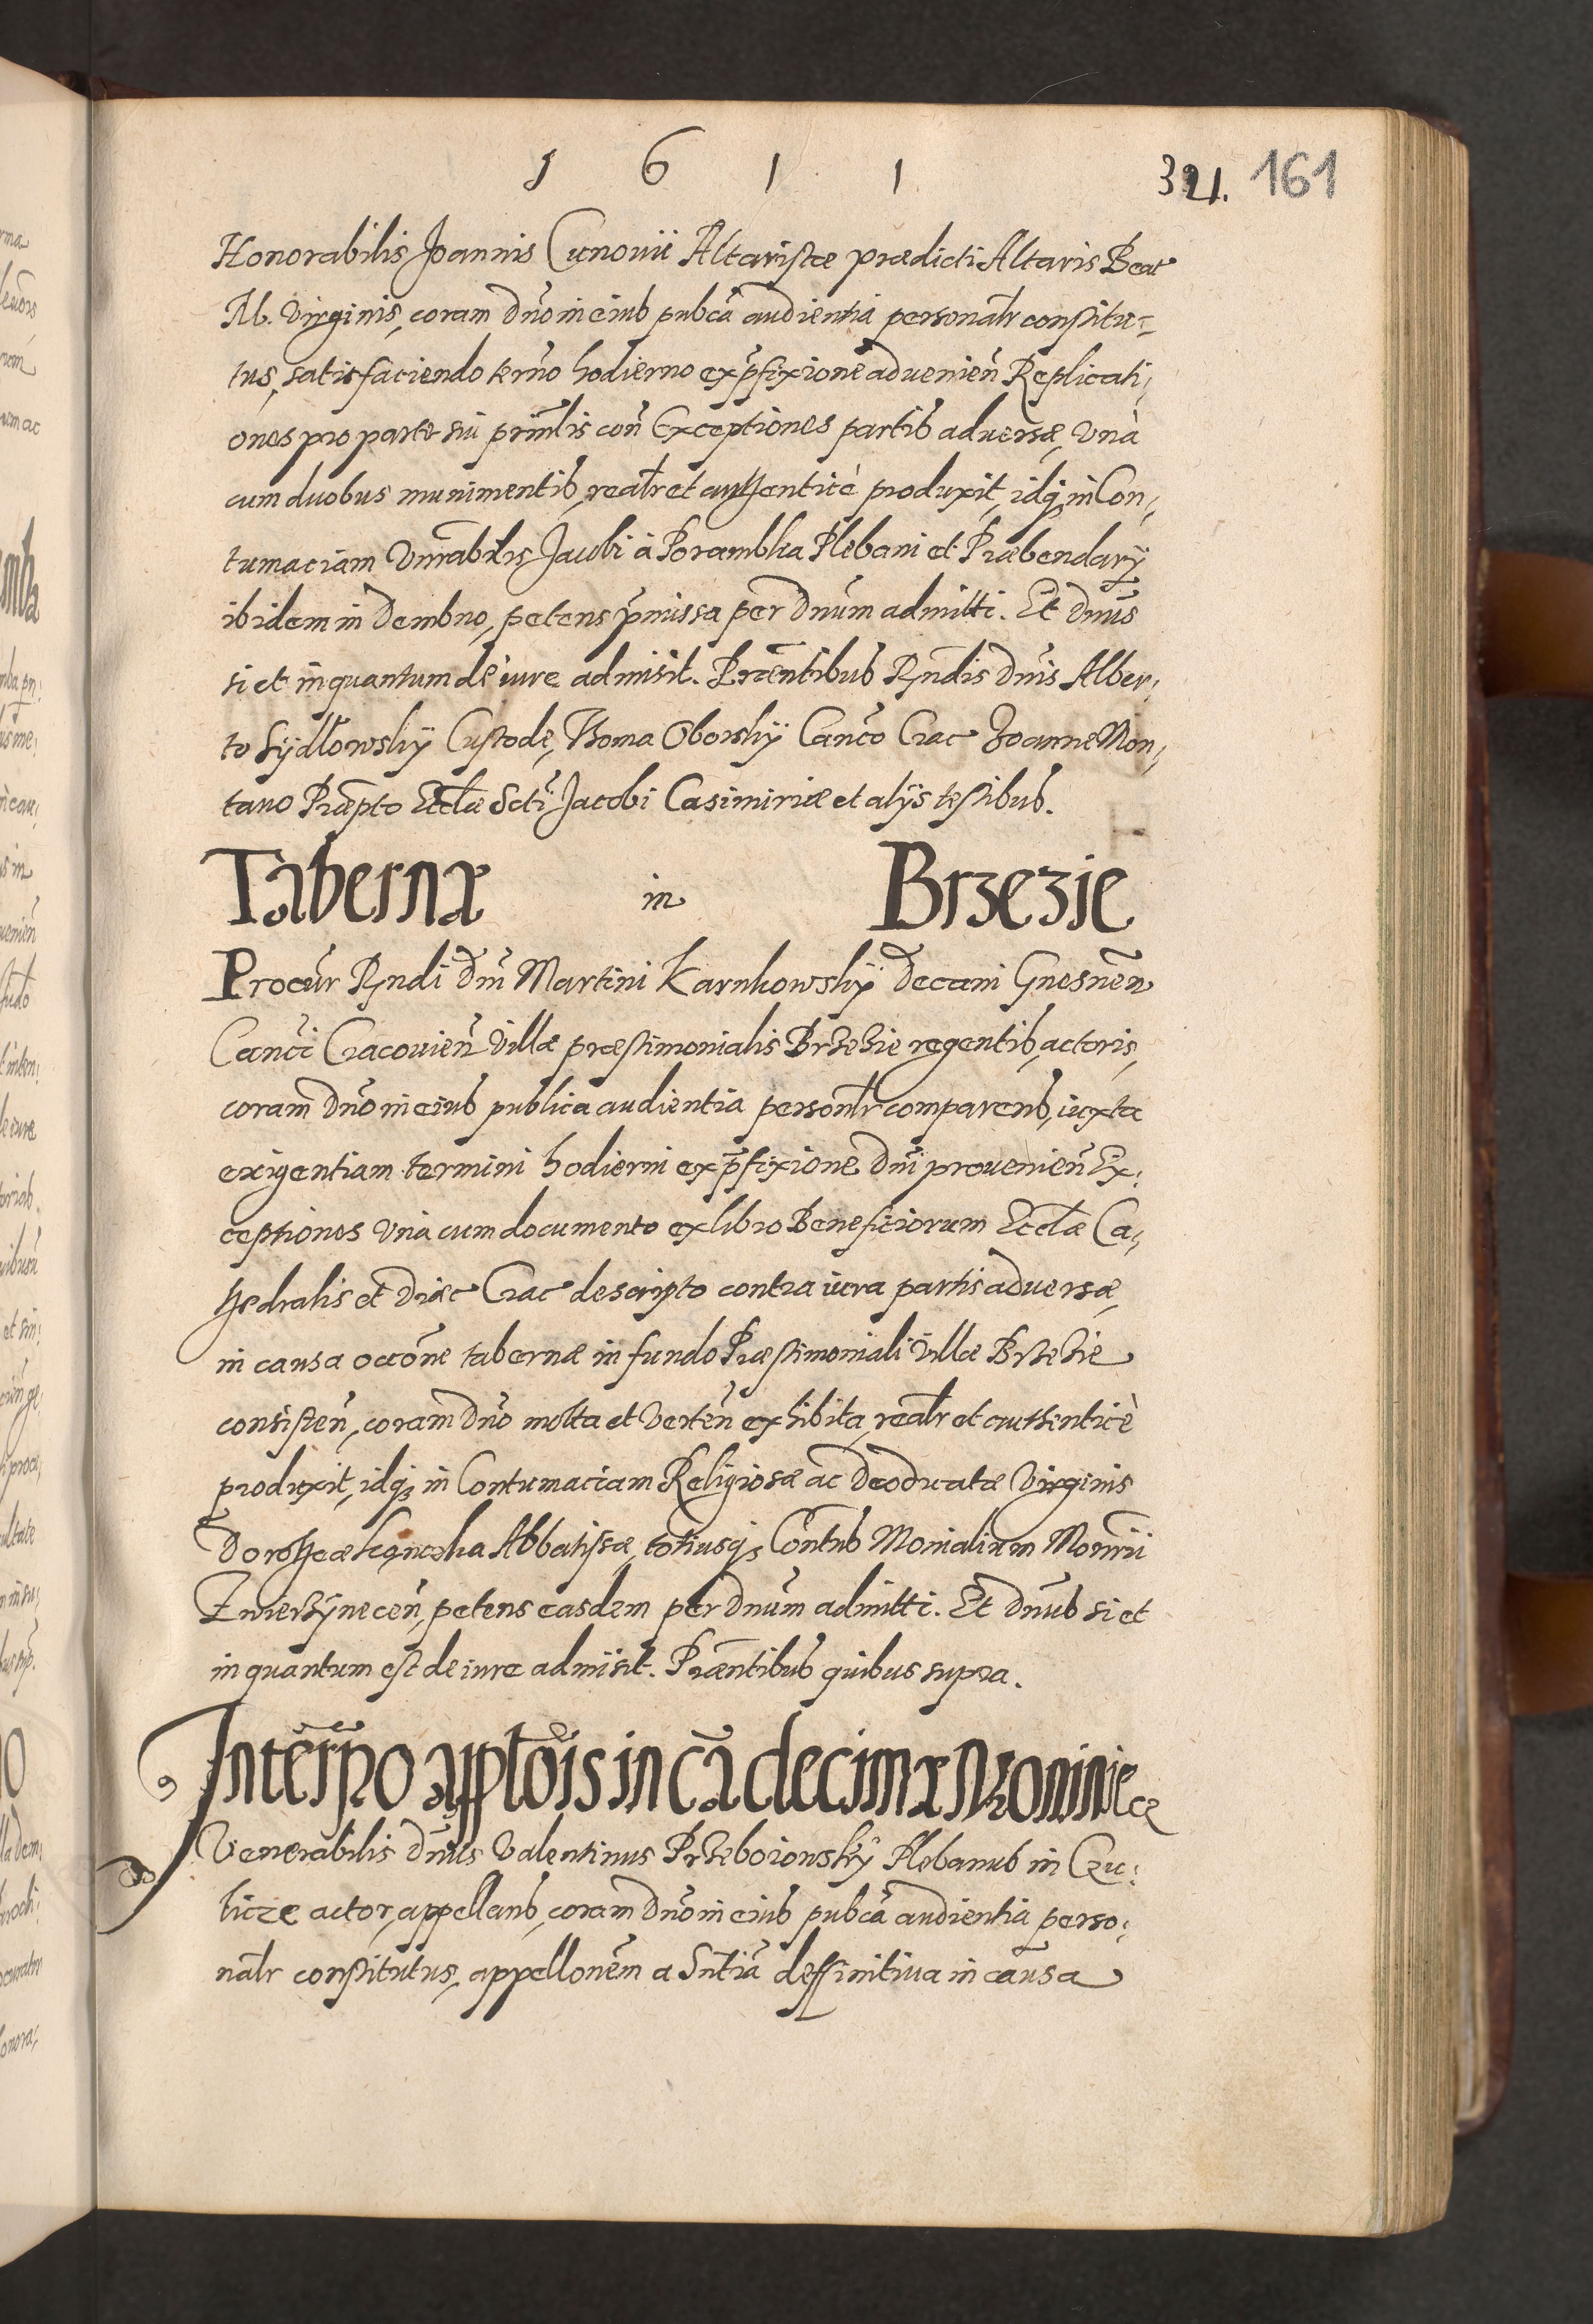 1 6 1 1
321. 161
Honorabilis Joannis Cunovii Altaristæ prædicti Altaris Beat
M. Virginis, coram dño in eius pubca audientia personalr constitu-
tus, satisfaciendo termo hodierno ex pfixione advenien Replicati-
ones pro parte sui prinlis con Exceptiones partis adversæ, vna
cum duobus munimentis, realr et authenticè produxit, idq in Con-
tumaciam Vnrabilis Jacobi à Porambka Plebani et Præbendarÿ
ibidem in Dembno, petens pmissa per Dnum admitti. Et Dnus
si et inquantum de iure admisit. Præntibus Rndis Dnis Alber-
to Sÿdlowskÿ Custode, Thoma Oborskÿ Canco Crac Joanne Mon-
tano Præpto Ecclæ Scti Jacobi Casimiriæ et alÿs testibus.
Tabernæ in Brzezie
Procur Rndi Dni Martini Karnkowskÿ Decani Gnesnen
Canci Cracovien Villæ præstimonialis Brzezie regentis, actoris,
coram Dno in eius publica audientia personlr comparens, iuxta
exigentiam termini hodierni ex pfixione Dni provenien Ex-
ceptiones vna cum documento ex libro Beneficiorum Ecclæ Ca-
thedralis et Diæc Crac descripto contra iura partis adversæ,
in causa occone tabernæ in fundo Præstimoniali Villæ Brzezie
consisten, coram Dno mota et verten exhibita, realr et authenticè
produxit, idq in Contumaciam Religiosæ ac Deodicatæ Virginis
Dorotheæ Abbatissæ, totiusq Contus Monialium Monrii
Zwierzÿnecen, petens easdem per Dnum admitti. Et Dnus si et
in quantum est de iure admisit. Præntibus quibus supra.
In termino applois in ca decimæ
Venerabilis Dnus Valentinus Przeboiowskÿ Plebanus in Czu-
licze actor, appellans, coram Dno in eius pubca audientia perso-
nalr constitutus, appellonem a Sntia deffinitiva in causa